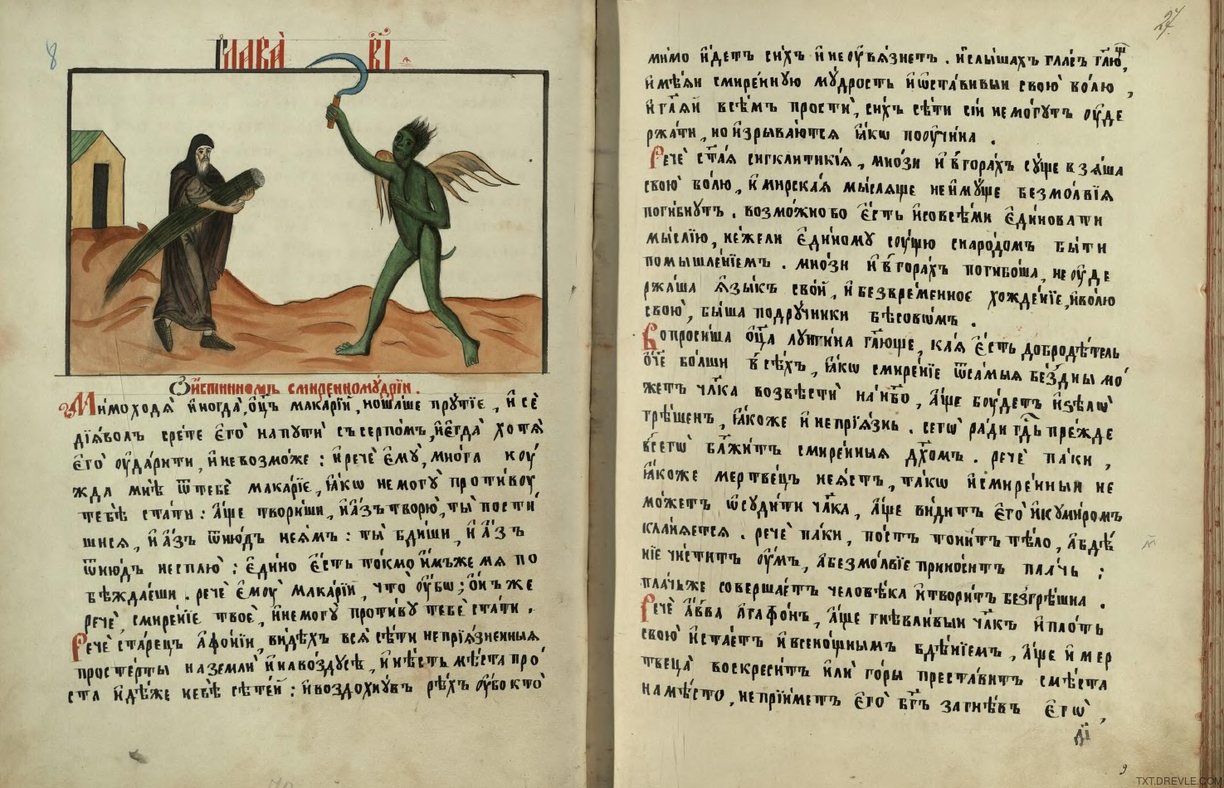 8
Глава̀ в҃і.
Ѡ҆ и҆стинномъ смиренномꙋ́дрїи.
Мимоходѧ̀ и҆ногда̀ ѻ҆ц҃ъ мака́рїи, ношаше прꙋ́тїе, и҆ се́
дїѧ́волъ срете є҆го̀ на пꙋтѝ съ серпо́мъ, и҆ є҆гда̀ хотѧ̀
є҆го̀ оу҆да́рити, и҆ не возмо́же : и҆ речѐ є҆мꙋ̀, мно́га нꙋ́
жда мнѣ̀ ѿ тебѐ мака́рїе, ꙗ҆́кѡ не могꙋ̀ противоꙋ̀
тебѣ̀ ста́ти : а҆́ще твори́ши, и҆ а҆́зъ творю̀, ты̀ пости́
шисѧ, и҆ а҆́зъ ѿню́дъ не ꙗ҆́мъ : ты̀ бди́ши, и҆ а҆́зъ
ѿню́дъ не сплю̀ : є҆ди́но є҆́сть то́кмо и҆́мъже мѧ по
бѣжда́еши . речѐ є҆мꙋ̀ мака́рїи, что̀ оу҆́бѡ ; ѻ҆́нъ же
речѐ, смире́нїе твоѐ, и҆ не могꙋ̀ проти́вꙋ тебѐ ста́ти .
Речѐ ста́рецъ а҆фо́нїи, ви́дѣхъ всѧ̀ сѣ́ти непрїѧ́зненныѧ
просте́рты на землѝ и҆ на во́здꙋсѣ, и҆ нѣ́сть мѣ́ста про́
ста и҆дѣ́же не бѣ̀ сѣте́й : и҆ воздохнꙋ́въ рѣ́хъ оу҆̀бо кто̀
27
ми́мо и҆́детъ си́хъ и҆ не оу҆вѧ́знетъ . и҆ слы́шахъ гла́съ гл҃ющ,
и҆мѣ́ѧи смире́ннꙋю мꙋ́дрость и҆ ѡ҆ста́вивыи свою̀ во́лю ,
и҆ гл҃ѧй всѣ́мъ простѝ, си́хъ сѣ́ти сїѝ не мо́гꙋтъ оу҆де
ржа́ти, но и҆зрыва́ютсѧ ꙗ҆́кѡ паоу҆чи́на .
Речѐ ст҃а́ѧ сигклитикі́ѧ, мно́зи и҆ в гора́хъ сꙋ́ще взѧ́ша
свою̀ во́лю, и҆ мирска́ѧ мы́слѧще не и҆мꙋ́ще безмо́лвїѧ
поги́бнꙋтъ . возмо́жно бо є҆́сть и҆ со всѣ́ми є҆диновати
мы́слїю, не́жели є҆ди́номꙋ сꙋ́щю с наро́домъ бы́ти
помышле́нїемъ . мно́зи и҆ в гора́хъ погибо́ша, не оу҆де
ржа́ша ꙗ҆зы́къ сво́й, и҆ безвре́менное хожде́нїе, и҆ во́лю
свою̀, бы́ша подрꙋ́чники бѣсовѡ́мъ .
Вопроси́ша ѻ҆ц҃а̀ лꙋ́ггина гл҃юще, ка́ѧ є҆́сть добродѣ́тель
ѻ҆́ч҃е бо́лши в сѣ́хъ, ꙗ҆́кѡ смире́нїе ѿ са́мыѧ бе́здны мо́
жетъ чл҃ка возвестѝ на́ н҃бо, а҆́ще бꙋ́детъ и҆ ѕѣлѡ̀
грѣ́шенъ, ꙗ҆́коже и҆ непрїѧ́знь . сегѡ̀ ра́ди гд҃ь пре́жде
всегѡ̀ бл҃жи́тъ смире́нныѧ дх҃омъ . речѐ па́ки ,
ꙗ҆́коже мертве́цъ не ꙗ҆́стъ, та́кѡ и҆ смире́нный не
мо́жетъ ѡ҆сꙋди́ти чл҃ка, а҆́ще ви́дитъ є҆го̀ и҆ кꙋми́ромъ
кла́нѧетсѧ . речѐ па́ки, по́стъ тони́тъ тѣ́ло, а҆ бдѣ́
нїе чи́ститъ оу҆́мъ, а҆ безмо́лвїе прино́ситъ пла́чь ;
пла́чьже соверша́етъ человѣ́ка и҆ твори́тъ безгрѣ́шна .
Речѐ а҆́вва а҆гаѳо́нъ, а҆́ще гнѣвли́выи чл҃къ и҆ пло́ть
свою̀ и҆ста́етъ и҆ всено́щнымъ бдѣ́нїемъ, а҆́ще и҆ мер
твеца̀ воскреси́тъ и҆лѝ го́ры преста́витъ с мѣ́ста
на мѣ́сто, не прїи́метъ є҆го̀ бг҃ъ за гнѣ́въ є҆гѡ̀ ,
9
TXT.DREVLE.COM